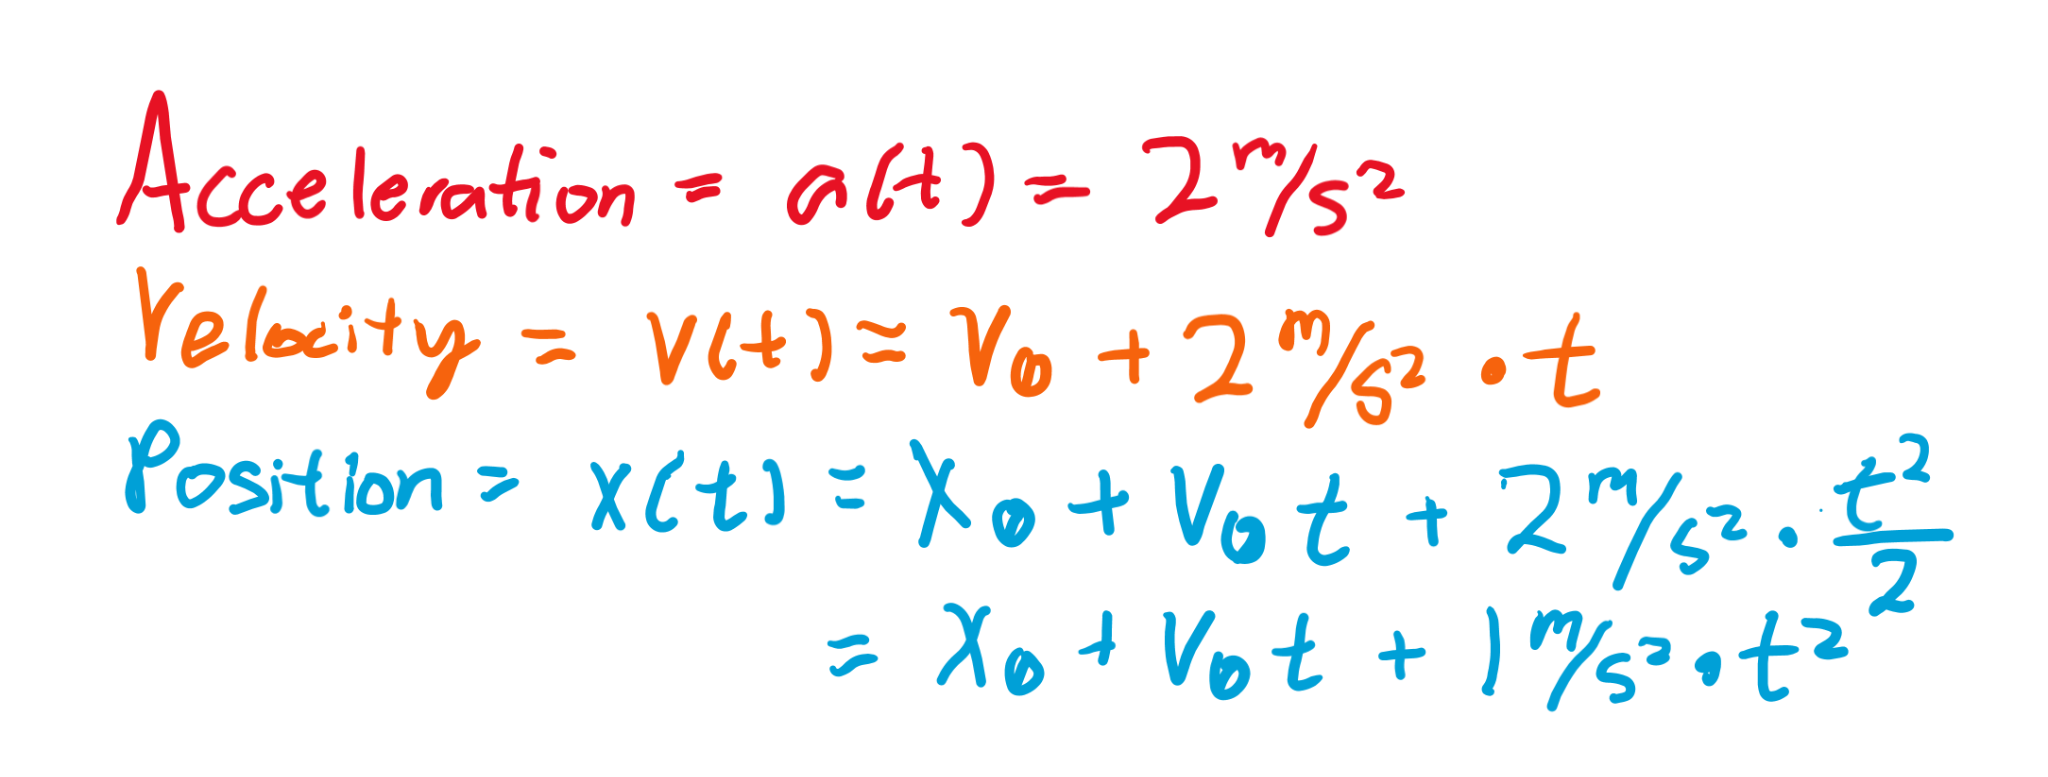 Acceleration = a(t) = 2 m/s²
Velocity = v(t) = v₀ + 2 m/s² · t
Position = x(t) = x₀ + v₀t + 2 m/s² · t²/2
= x₀ + v₀t + 1 m/s² · t²